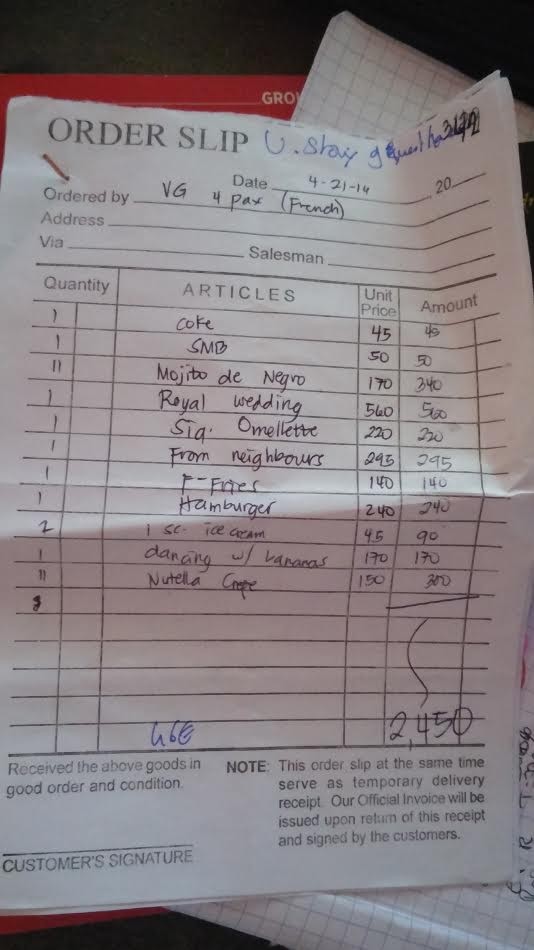 GROU
ORDER SLIP U. Stay guest ha
Date 4-21-14 20
Ordered by VG 4 pax (French)
Address
Via Salesman
Quantity ARTICLES Unit Price Amount
1 coke 45 45
1 SMB 50 50
11 Mojito de Negro 170 340
1 Royal wedding 560 560
1 Sig. Omellette 220 220
1 From neighbours 295 295
1 F-Fries 140 140
1 Hamburger 240 240
2 1 sc. ice cream 45 90
1 dancing w/ bananas 170 170
11 Nutella Crepe 150 300
2,450
Received the above goods in
good order and condition.
NOTE: This order slip at the same time
serve as temporary delivery
receipt. Our Official Invoice will be
issued upon return of this receipt
and signed by the customers.
CUSTOMER'S SIGNATURE